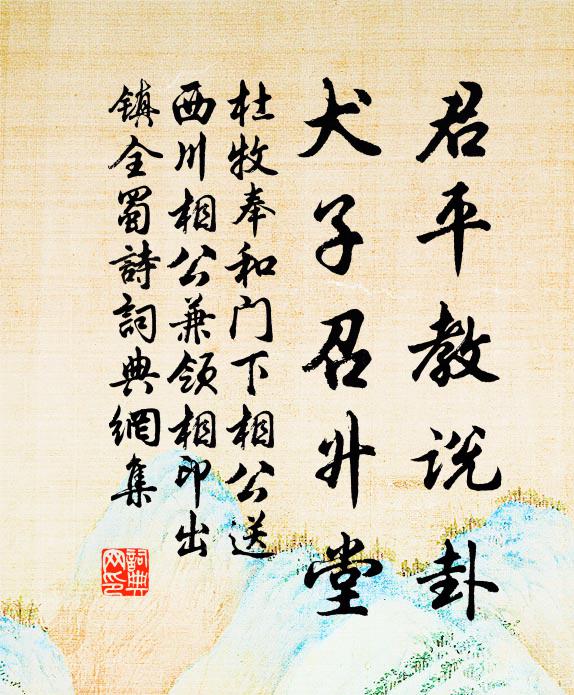 君平教说卦
犬子召升堂
杜牧奉和门下相公送
西川相公兼领相印出
镇全蜀詩詞典網集
詞典
网印